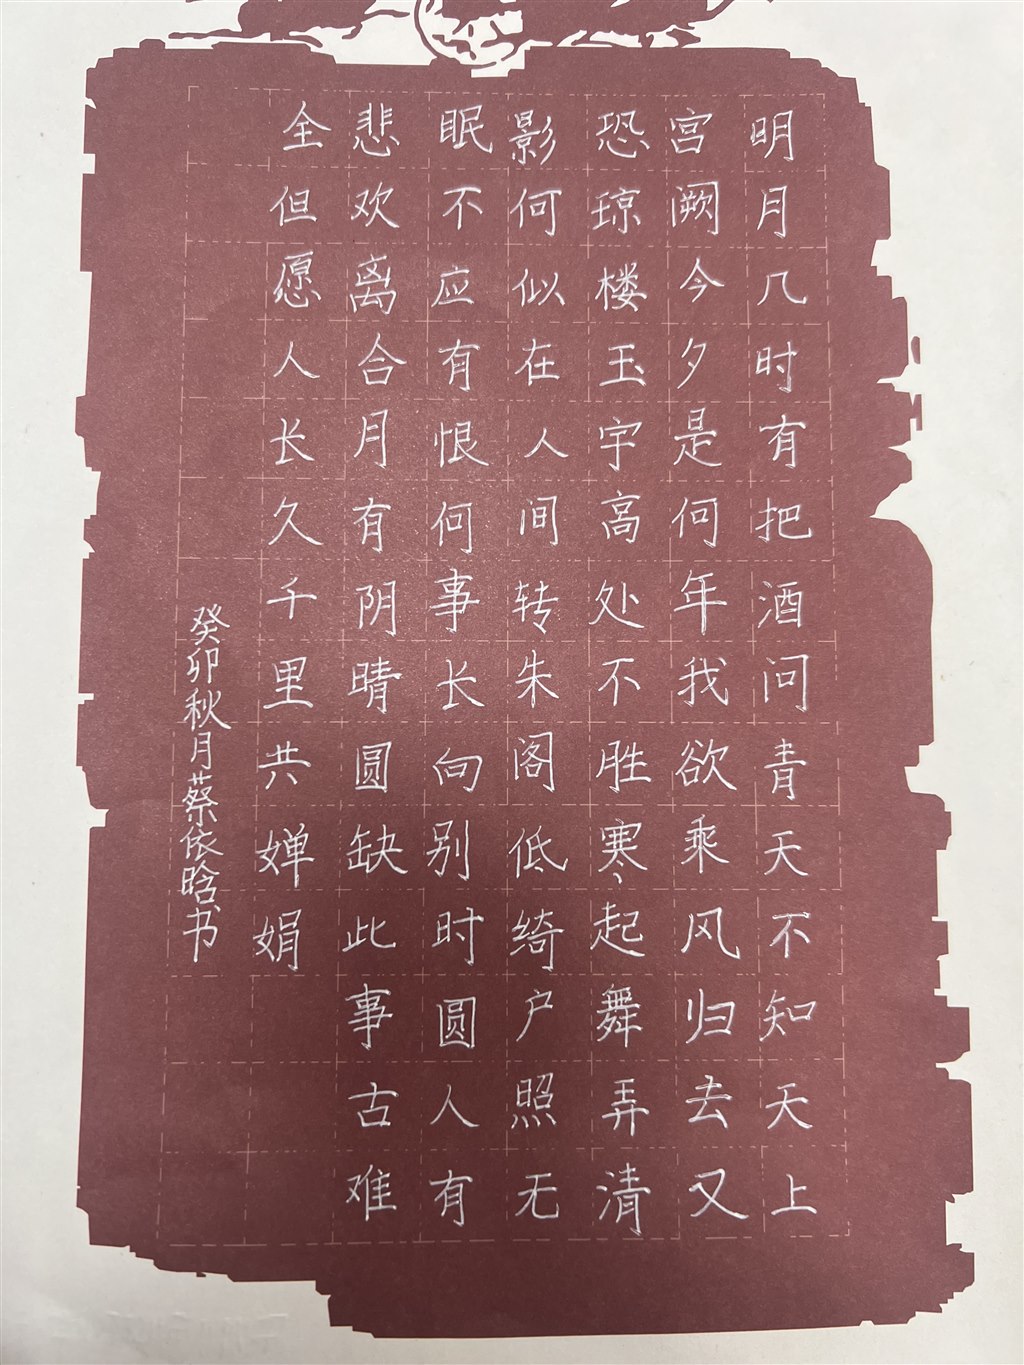 明月几时有把酒问青天不知天上
宫阙今夕是何年我欲乘风归去又
恐琼楼玉宇高处不胜寒起舞弄清
影何似在人间转朱阁低绮户照无
眠不应有恨何事长向别时圆人有
悲欢离合月有阴晴圆缺此事古难
全但愿人长久千里共婵娟
癸卯秋月蔡依晗书